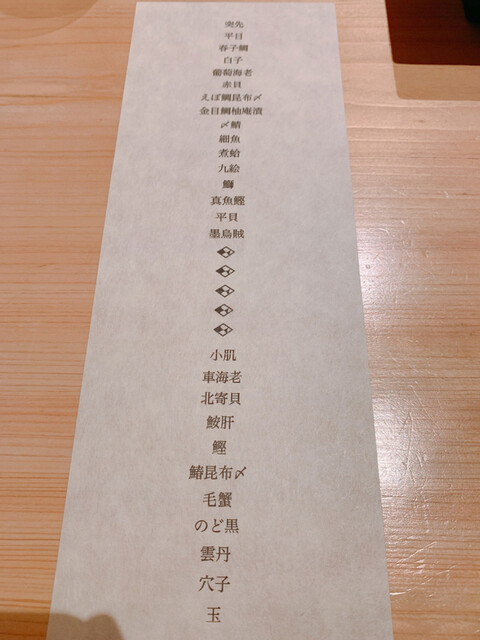 突先
平目
春子鯛
白子
葡萄海老
赤貝
えぼ鯛昆布〆
金目鯛柚庵漬
〆鯖
細魚
煮蛤
九絵
鰤
真魚鰹
平貝
墨烏賊
小肌
車海老
北寄貝
鮟肝
鰹
鰆昆布〆
毛蟹
のど黒
雲丹
穴子
玉